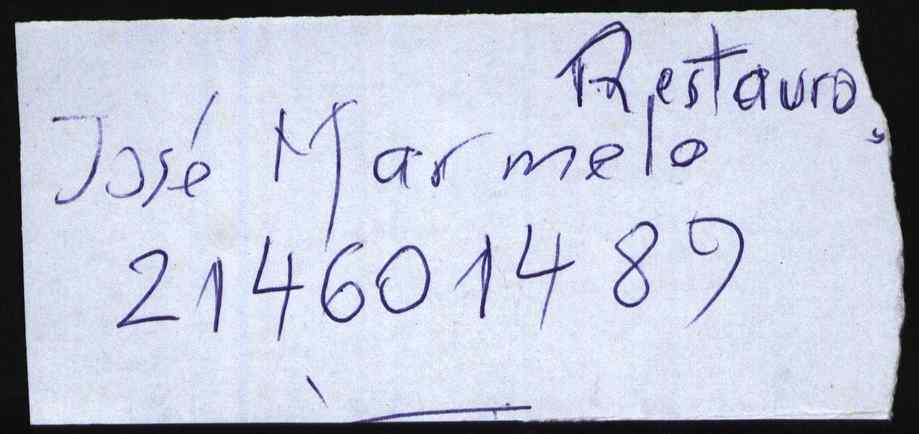 Restauro
José Marmelo
214601489